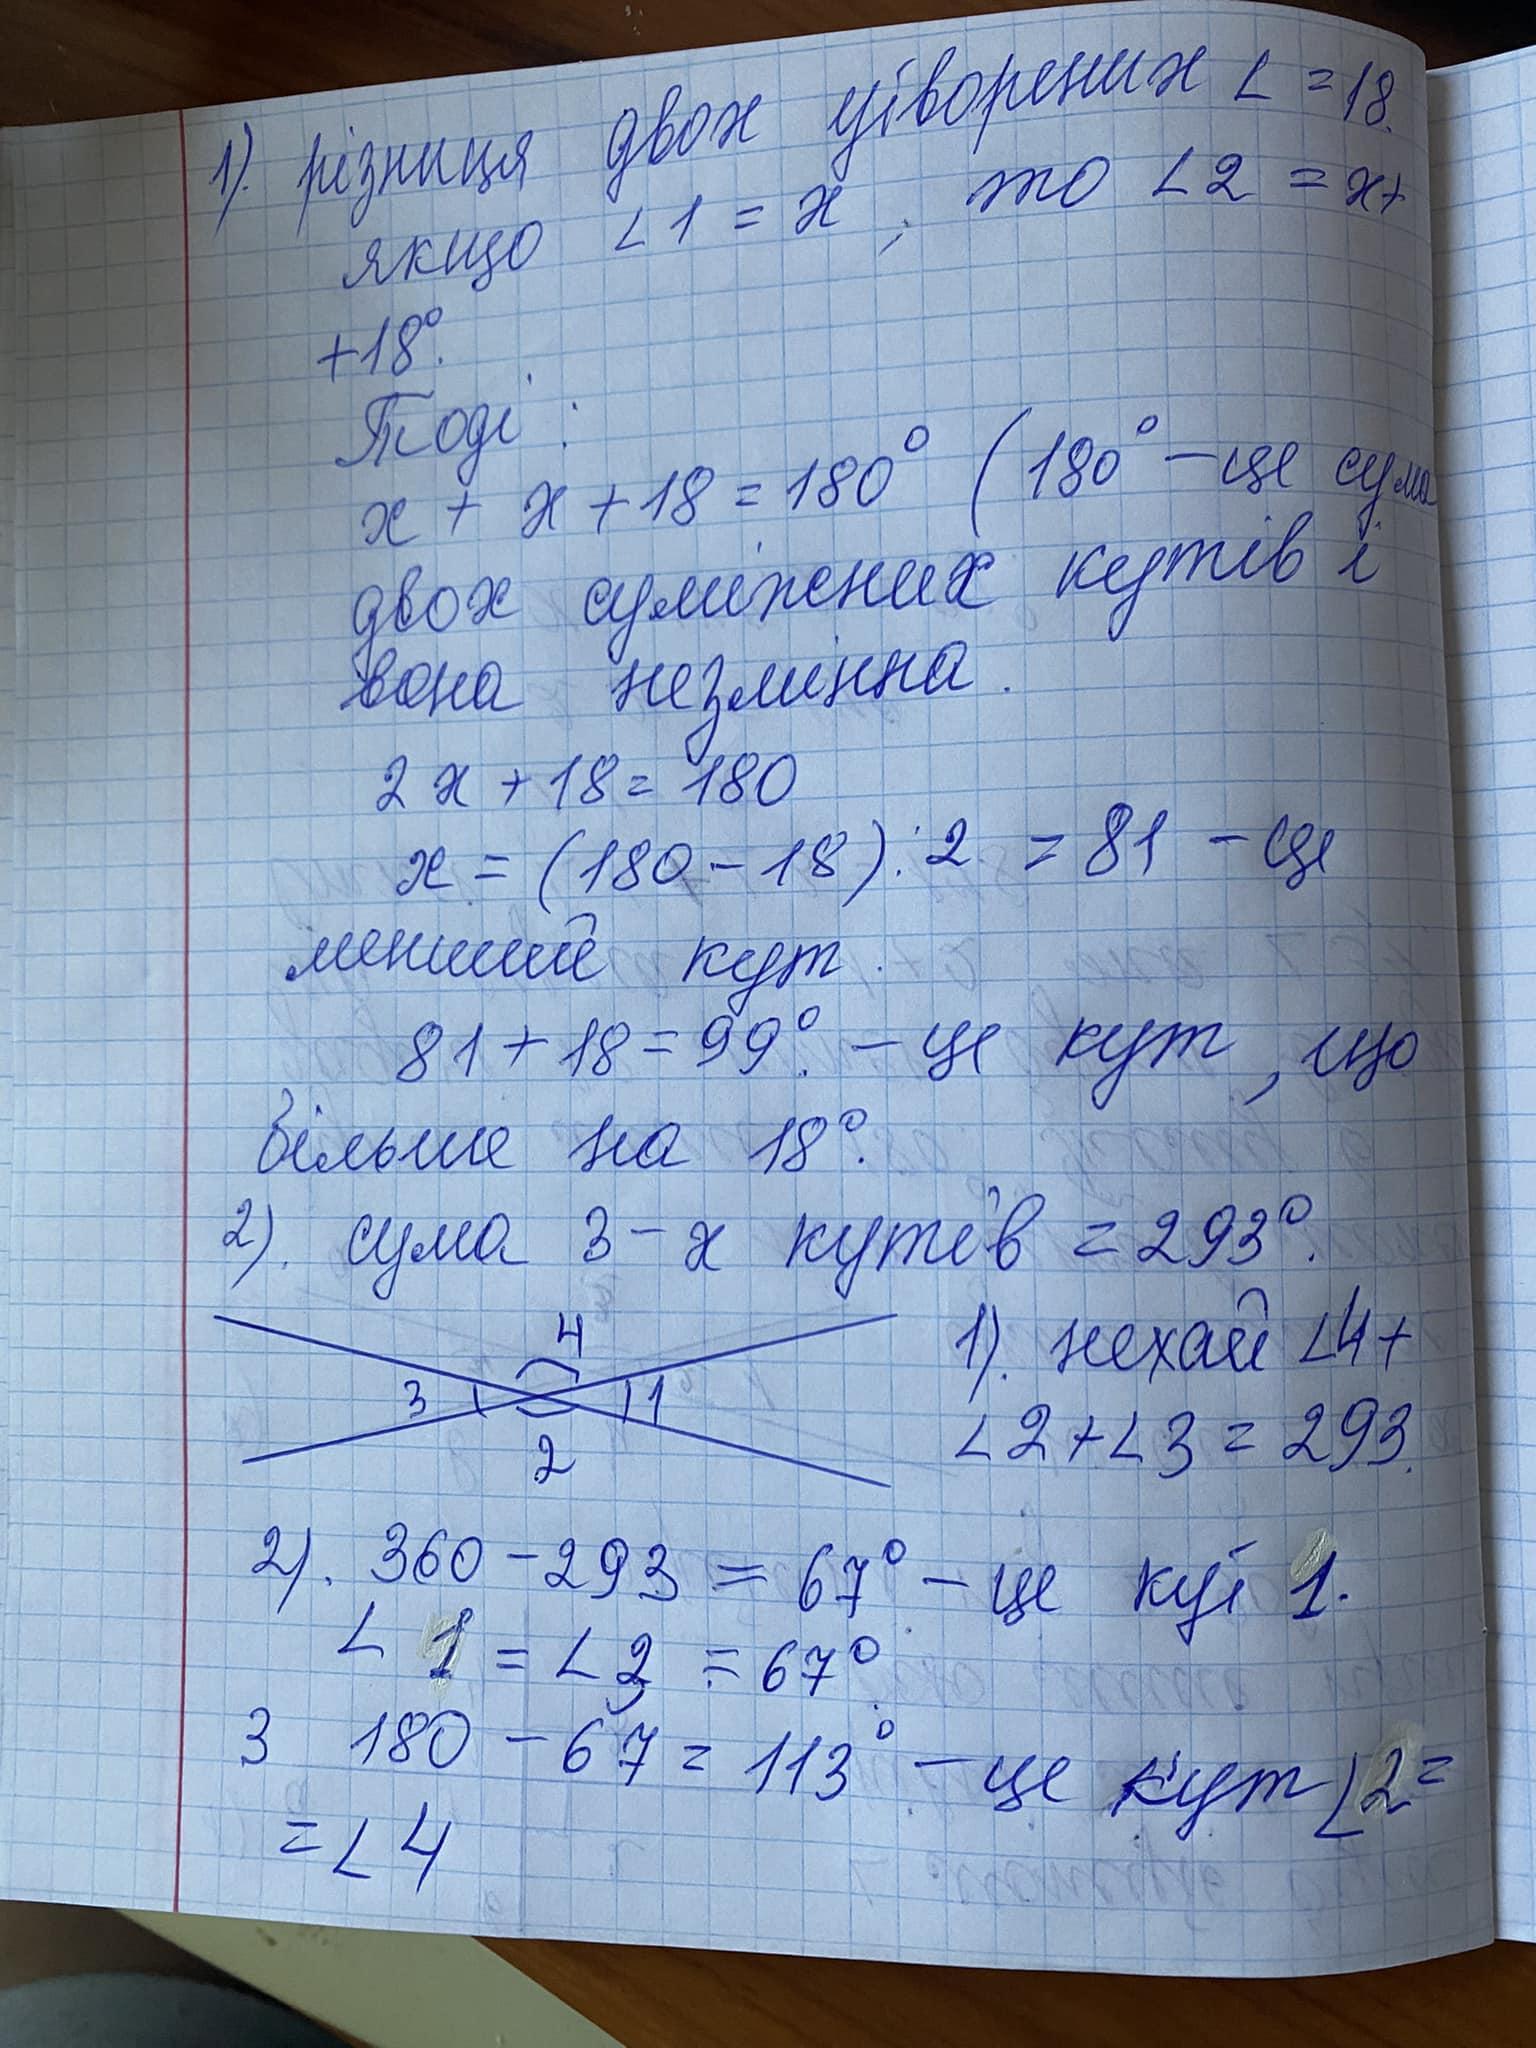 1). різниця двох утворених ∠ = 18.
якщо ∠1 = x, то ∠2 = x+
+18°.
Тоді:
x + x + 18 = 180° (180° – це сума
двох суміжних кутів і
вона незмінна.
2x + 18 = 180
x = (180 – 18) : 2 = 81 – це
менший кут.
81 + 18 = 99°. – це кут, що
більше на 18°.
2). сума 3-х кутів = 293°.
4
3
1
2
1). нехай ∠4+
∠2+∠3 = 293.
2). 360 – 293 = 67° – це кут 1.
∠1 = ∠3 = 67°.
3 180 – 67 = 113° – це кут ∠2 =
= ∠4